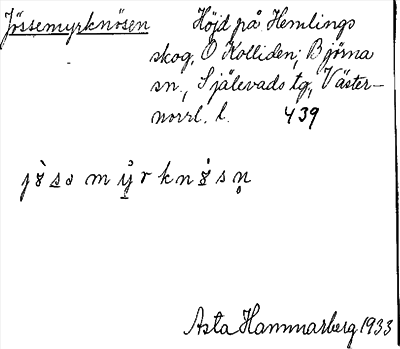 Jössemyrknösen Höjd på Hemlings
skog, O Kolliden; Björna
sn., Själevads tg, Väster-
norrl. l. 439
Asta Hammarberg 1933